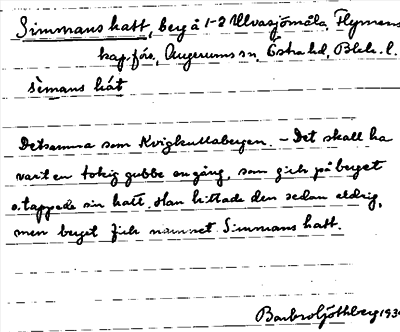 Simmans hatt, berg å 1-2 Ulvasjömåla, Flymens
kap.förs., Augerums sn, Östra hd, Blek. l.
sèmans hát
Detsamma som Kvigkullabergen. – Det skall ha
varit en tokig gubbe en gång, som gick på berget
o. tappade sin hatt. Han hittade den sedan aldrig,
men berget fick namnet Simmans hatt.
Barbro Göthberg 193